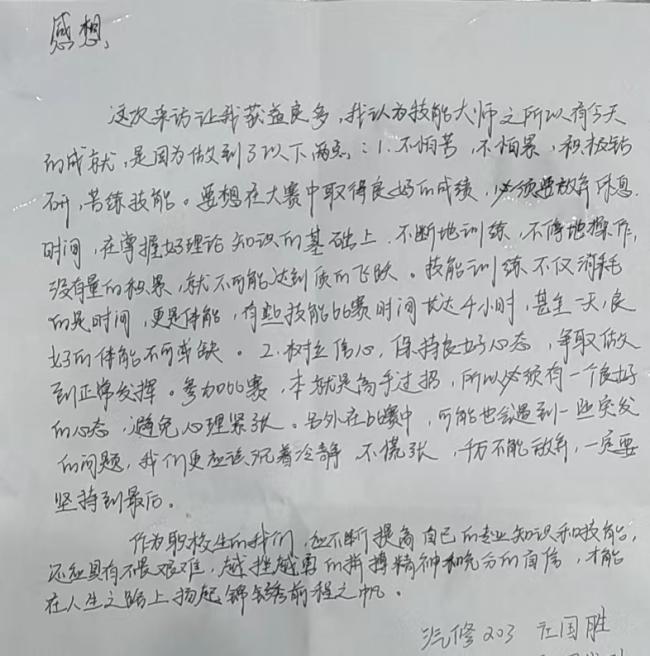 感想
这次采访让我获益良多，我认为技能大师之所以有今天
的成就，是因为做到了以下两点：1.不怕苦，不怕累，积极钻
研，苦练技能。要想在大赛中取得良好的成绩，必须要放弃休息
时间，在掌握好理论知识的基础上，不断地训练，不停地操作，
没有量的积累，就不可能达到质的飞跃。技能训练不仅消耗
的是时间，更是体能，有些技能比赛时间长达4小时，甚至一天，良
好的体能不可或缺。2.树立信心，保持良好心态，争取做
到正常发挥。参加比赛，本就是高手过招，所以必须有一个良好
的心态，避免心理紧张。另外在比赛中，可能也会遇到一些突发
的问题，我们更应该沉着冷静，不慌张，千万不能放弃，一定要
坚持到最后。
作为职校生的我们，应不断提高自己的专业知识和技能，
还应具有不畏艰难，越挫越勇的拼搏精神和充分的自信，才能
在人生之路上扬起锦绣前程之帆。
汽修203 汪国胜